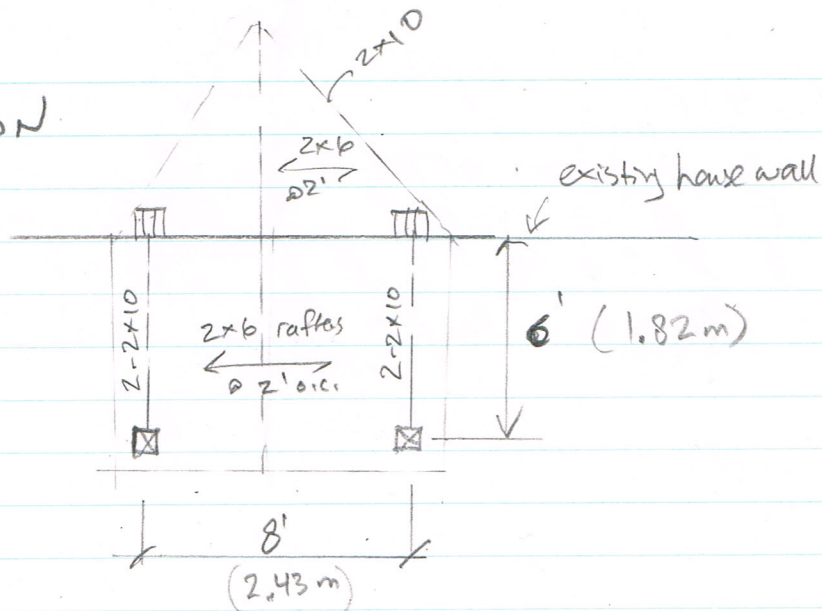 2x10
ON
2x6
@2'
existing house wall
2-2x10
2x6 rafters
@ 2' o.c.
2-2x10
6' (1.82m)
8'
(2.43 m)